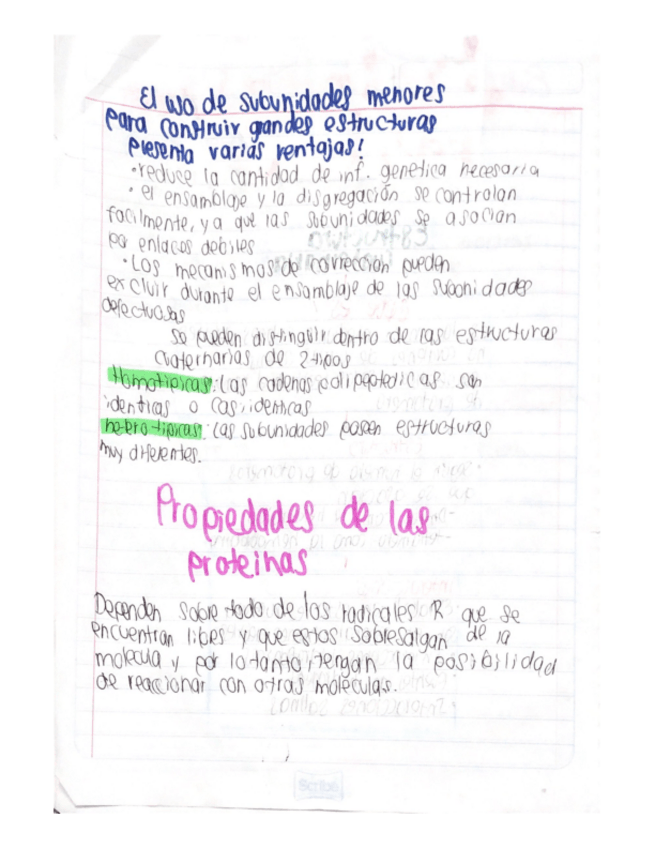 El uso de subunidades menores
para construir gandes estructuras
presenta varias ventajas!
•reduce la cantidad de inf. genética necesaria
• el ensamblaje y la disgregación se controlan
facilmente, ya que las subunidades se asocian
por enlaces debiles
•Los mecanismos de corrección pueden
excluir durante el ensamblaje de las subunidades
defectuosas
Se pueden distinguir dentro de las estructuras
cuaternarias de 2 tipos
Homotipicas: las cadenas polipeptedicas son
identicas o casi identicas
heterotipicas: las subunidades poseen estructuras
muy diferentes.
Propiedades de las
proteinas
Dependen sobre todo de los radicales R que se
encuentran libres y que estos sobresalgan de la
molecula y por lo tanto, tengan la posibilidad
de reaccionar con otras moléculas.
Scribe